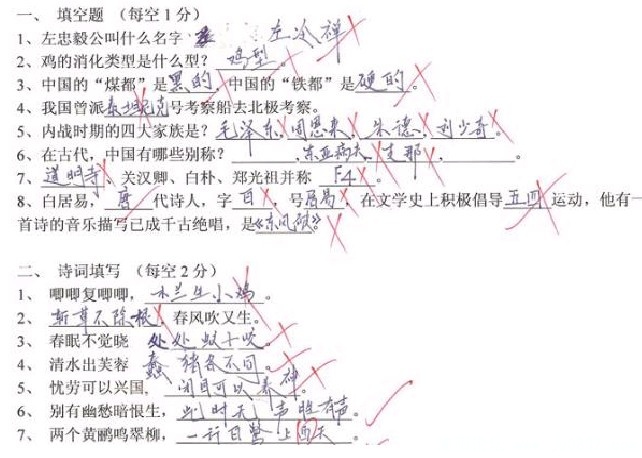 一、 填空题 （每空1分）
1、左忠毅公叫什么名字 左冷禅
2、鸡的消化类型是什么型？ 鸡型 。
3、中国的“煤都”是黑的，中国的“铁都”是硬的。
4、我国曾派泰坦尼克号考察船去北极考察。
5、内战时期的四大家族是？毛泽东，周恩来，朱德，刘少奇。
6、在古代，中国有哪些别称？ 、东亚病夫、支那、 。
7、道明寺、关汉卿、白朴、郑光祖并称 F4 。
8、白居易，唐代诗人，字 白 ，号居易，在文学史上积极倡导五四运动，他有一
首诗的音乐描写已成千古绝唱，是《东风破》？
二、 诗词填写 （每空2分）
1、 唧唧复唧唧， 木兰生小鸡 。
2、 斩草不除根，春风吹又生。
3、 春眠不觉晓 处处蚊子咬 。
4、 清水出芙蓉 蠢猪各不同 。
5、 忧劳可以兴国， 闭目可以养神 。
6、 别有幽愁暗恨生， 此时无声胜有声 。
7、 两个黄鹂鸣翠柳， 一行白鹭上西天 。